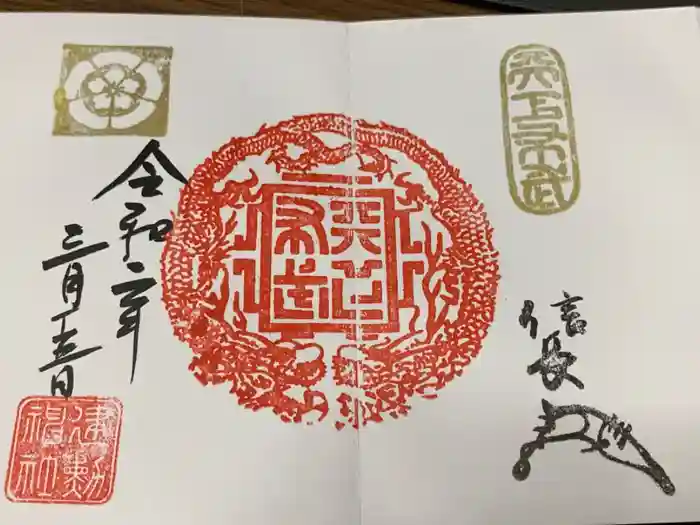 天下布武
信長
天下布武
令和二年
三月十五日
建勲神社